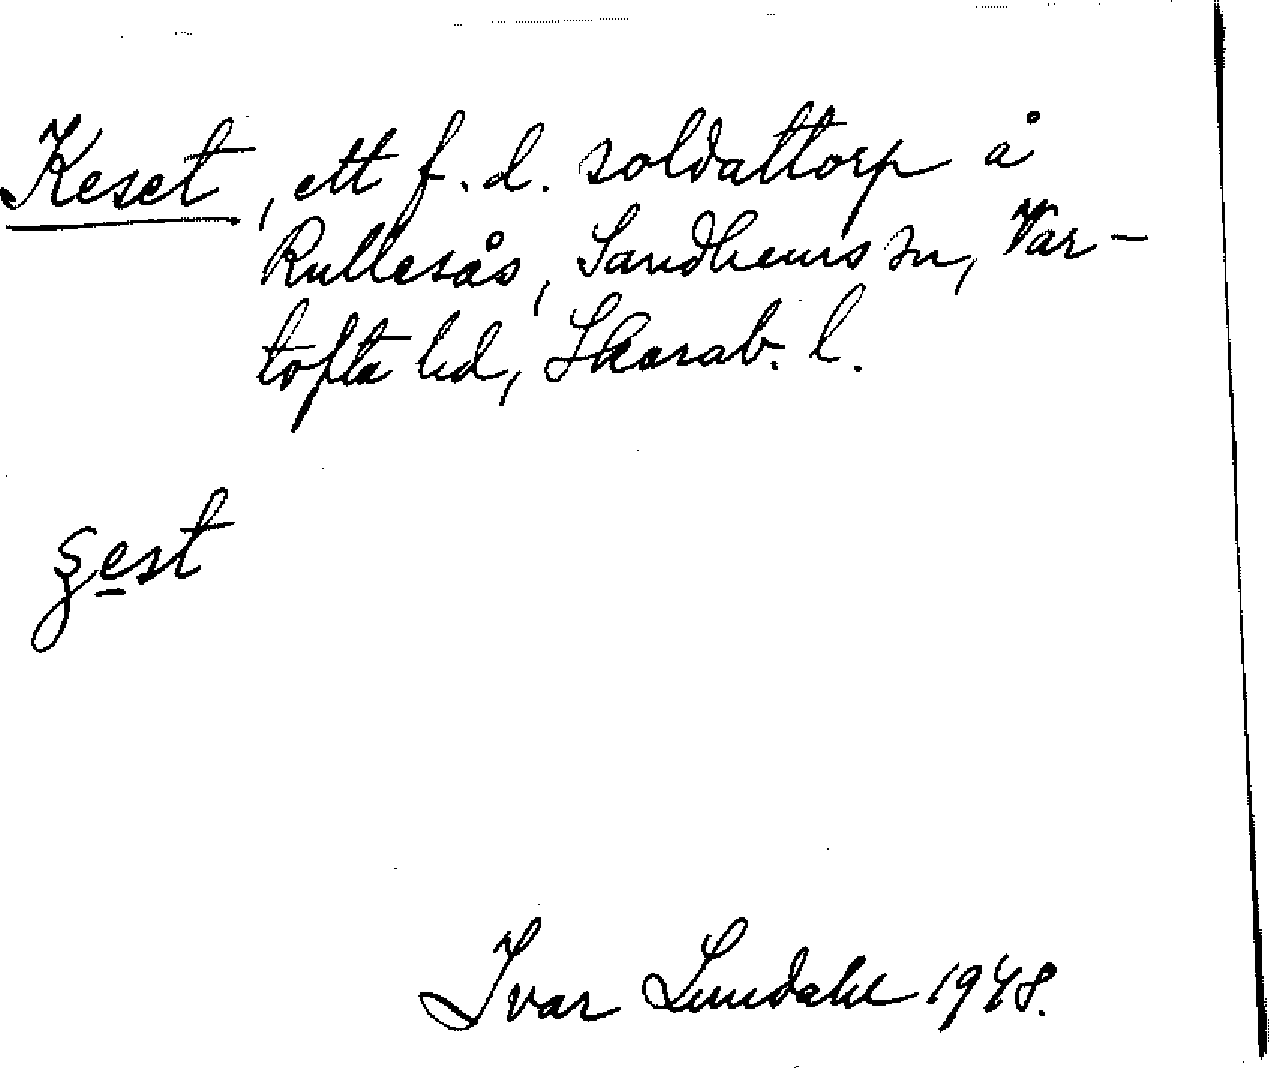 Keset, ett f.d. soldattorp å
Rullesås, Sandhems sn, Var-
tofta hd, Skarab. l.
Ivar Lundahl 1948.